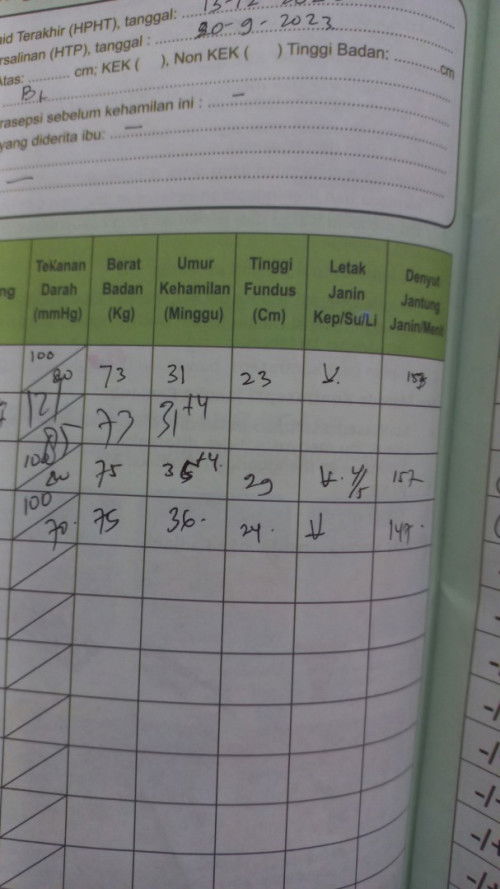 id Terakhir (HPHT), tanggal:
rsalinan (HTP), tanggal : 20-9-2023
Atas: cm; KEK ( ), Non KEK ( ) Tinggi Badan: cm
BL
rasepsi sebelum kehamilan ini : –
yang diderita ibu: –
–
ng Tekanan Darah (mmHg) Berat Badan (Kg) Umur Kehamilan (Minggu) Tinggi Fundus (Cm) Letak Janin Kep/Su/Li Denyut Jantung Janin/Menit
100/80 73 31 23
121/85 73 31+4
75 29 157
100/70 75 36 24 149